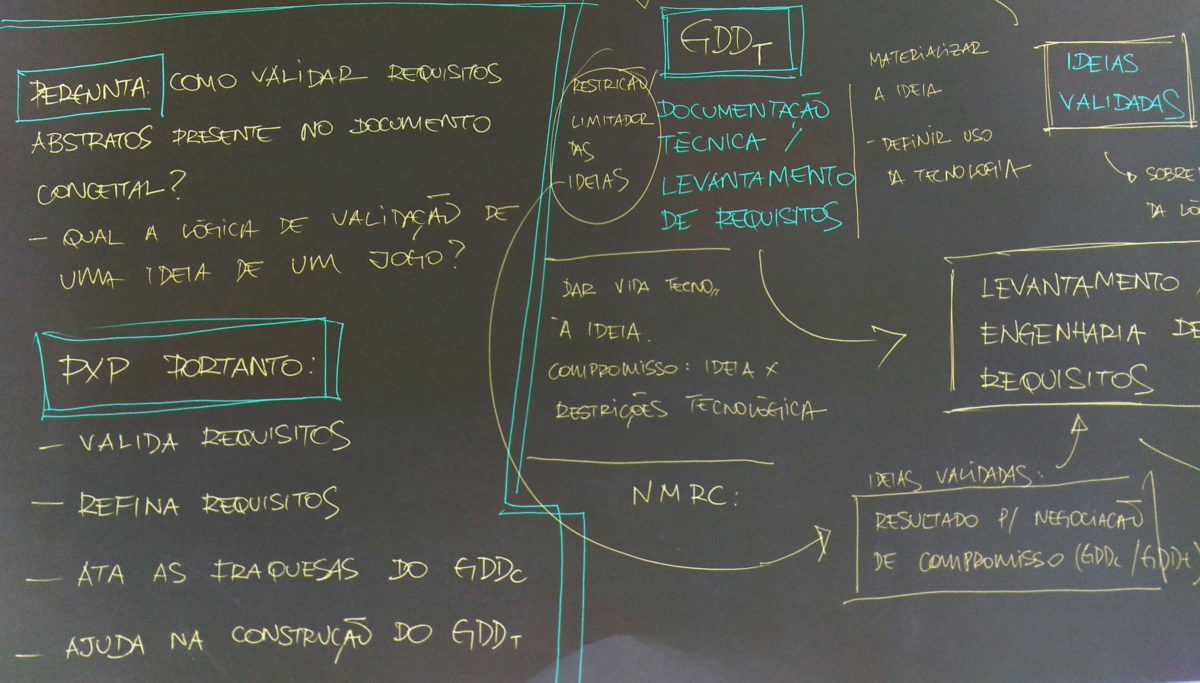 PERGUNTA: COMO VALIDAR REQUISITOS
ABSTRATOS PRESENTE NO DOCUMENTO
CONCEITAL?
- QUAL A LÓGICA DE VALIDAÇÃO DE
UMA IDEIA DE UM JOGO?
PXP PORTANTO:
- VALIDA REQUISITOS
- REFINA REQUISITOS
- ATA AS FRAQUESAS DO GDDC
- AJUDA NA CONSTRUÇÃO DO GDDT
GDDT
RESTRICAO/
LIMITADOR
DAS
IDEIAS
DOCUMENTAÇÃO
TÉCNICA /
LEVANTAMENTO
DE REQUISITOS
MATERIALIZAR
A IDEIA
- DEFINIR USO
DA TECNOLOGIA
DAR VIDA TECNO,,
À IDEIA.
COMPROMISSO: IDEIA X
RESTRIÇÕES TECNOLÓGICA
NMRC:
IDEIAS
VALIDADAS
SOBRE
DA LÓ
LEVANTAMENTO
ENGENHARIA DE
REQUISITOS
IDEIAS VALIDADAS:
RESULTADO P/ NEGOCIAÇÃO
DE COMPROMISSO (GDDC/GDDT)